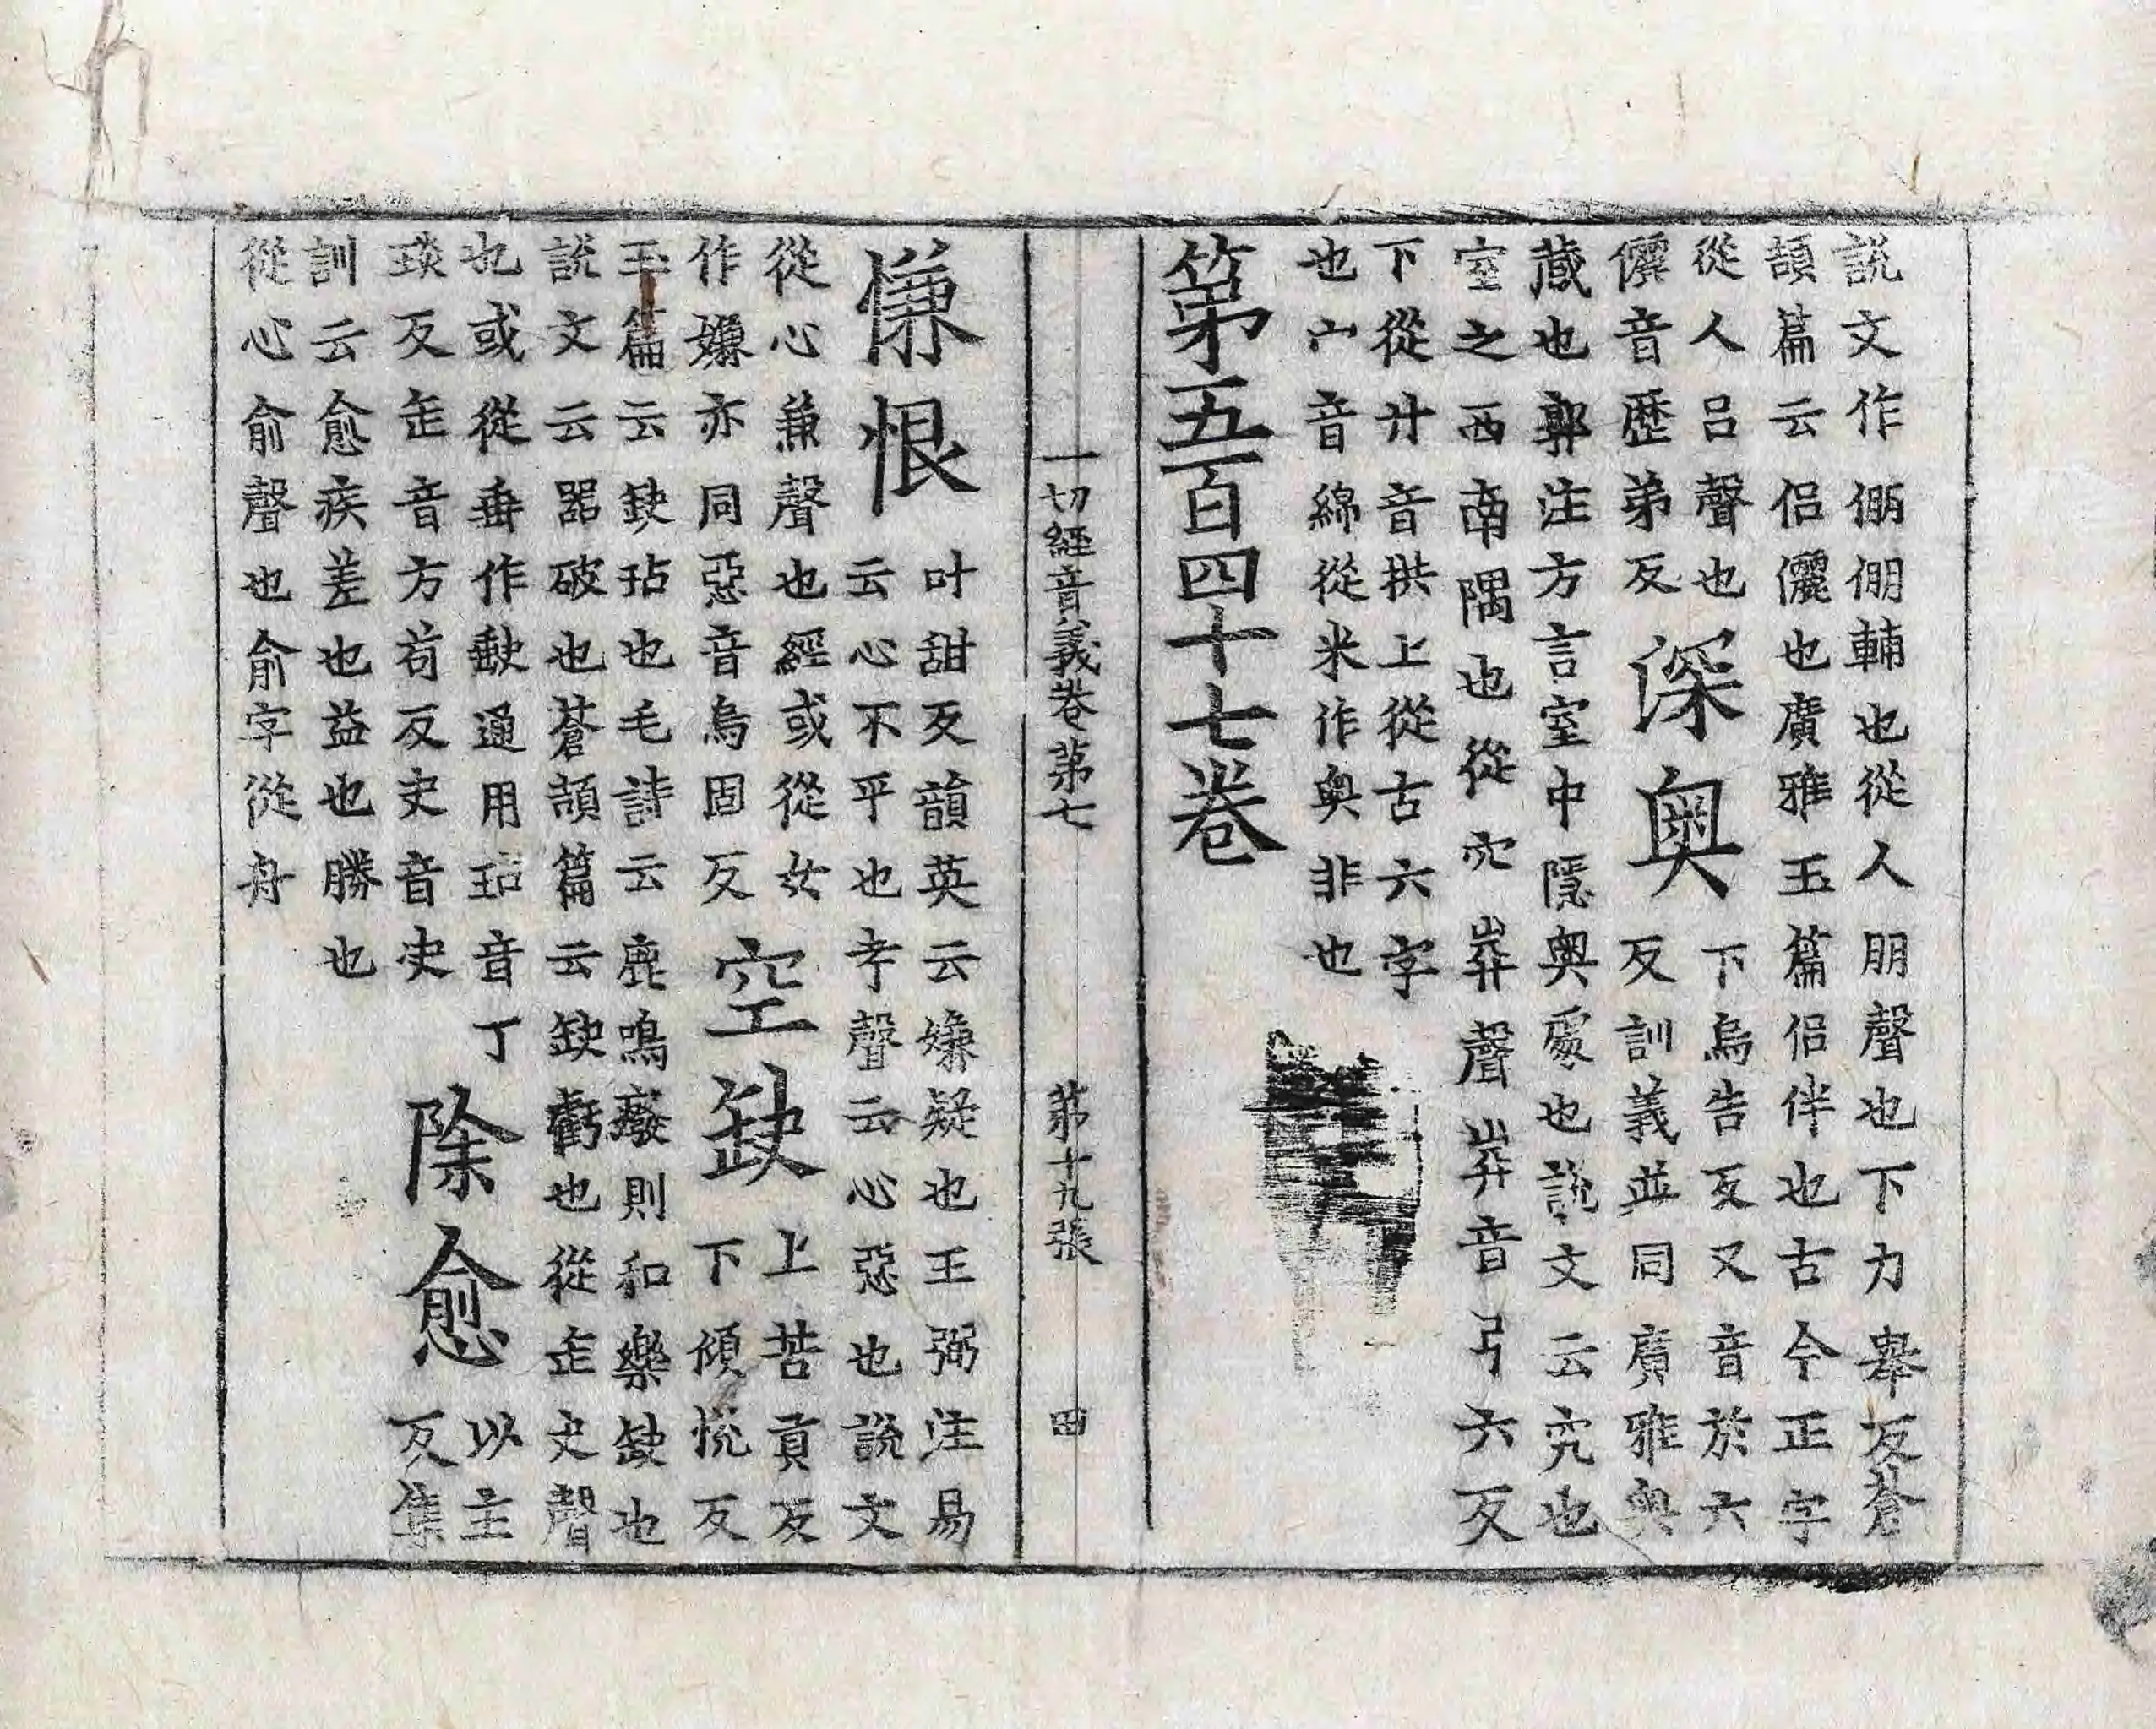 說文作倗倗輔也從人朋聲也下力舉反蒼
頡篇云侶儷也廣雅玉篇侶伴也古今正字
從人呂聲也
儷音歷弟反
深奧
下烏告反又音於六
反訓義並同廣雅奧
藏也郭注方言室中隱奧處也說文云究也
室之西南隅也從穴𢍏聲𢍏音弓六反
下從廾音拱上從古六字
也宀音綿從米作奥非也
第五百四十七卷
一切經音義卷第七 第十九張 四
慊恨
叶甜反韻英云嫌疑也王弼注易
云心不平也考聲云心惡也說文
從心兼聲也經或從女
作嫌亦同惡音烏固反
空缺
上苦貢反
下傾悅反
玉篇云缺玷也毛詩云鹿鳴廢則和樂缺也
說文云器破也蒼頡篇云缺虧也從缶夬聲
也或從垂作𡙇通用玷音丁
琰反缶音方苟反夬音史
除愈
以主
反集
訓云愈疾差也益也勝也
從心俞聲也俞字從舟